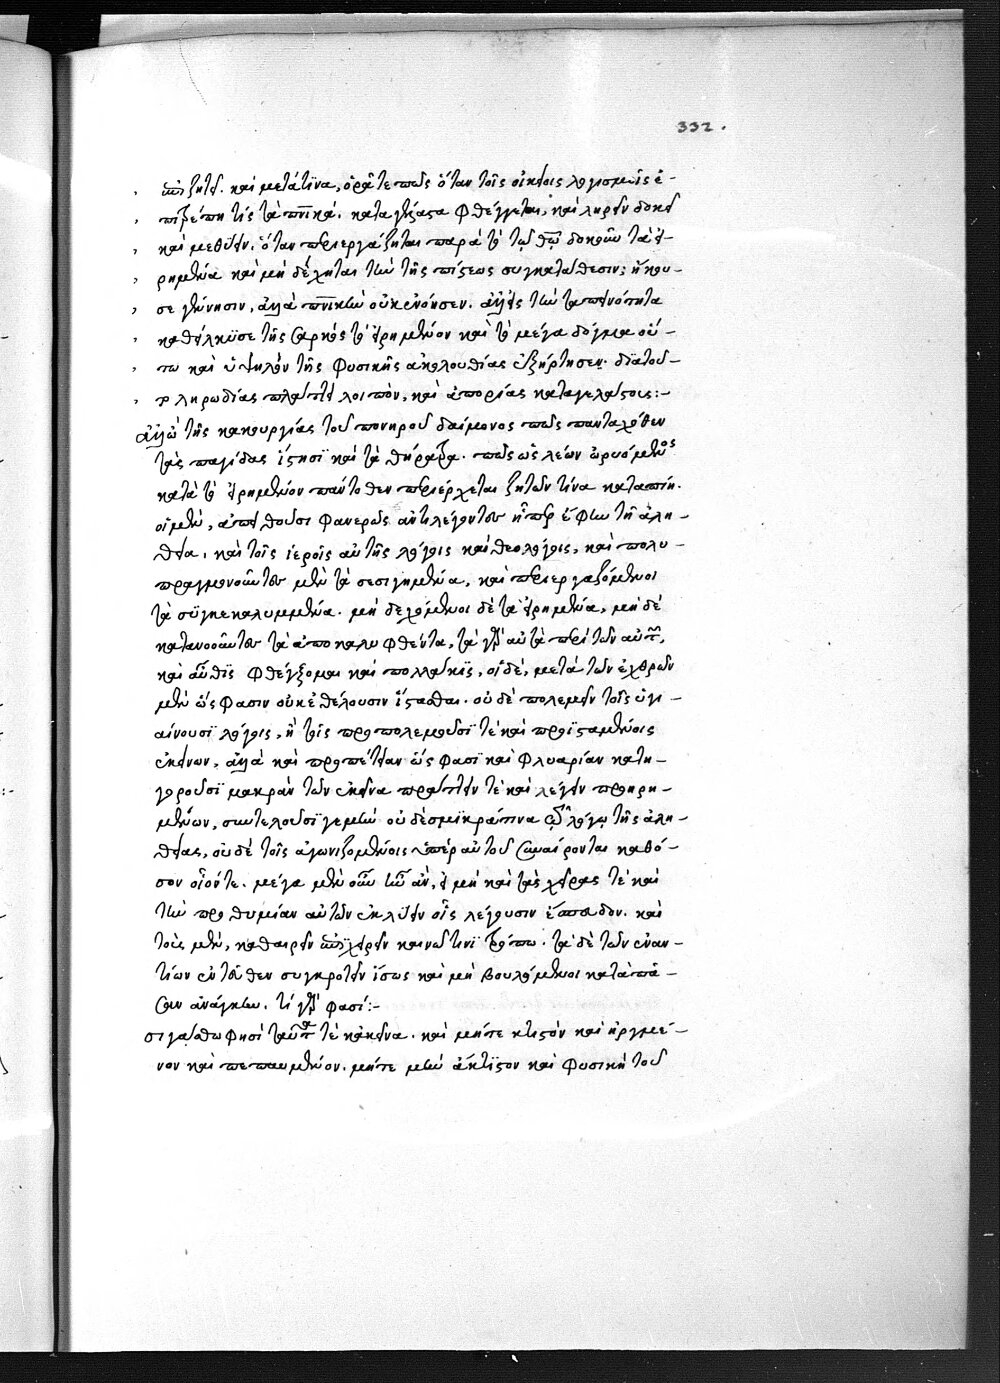 332.
ἐπιζητεῖ. καὶ μετά τινα, ὁρᾶτε πῶς ὅταν τοῖς οἰκείοις λογισμοῖς ἐ-
πιτρέπῃ τίς τὰ πνικά. καταγέλαστα φθέγγεται, καὶ ληρεῖν δοκεῖ
καὶ μεθύειν. ὅταν περιεργάζηται παρὰ τὸ τῷ θῷ δοκοῦν τὰ εἰ-
ρημένα καὶ μὴ δέχηται τὴν τῆς πίστεως συγκατάθεσιν: ἤκου-
σε γέννησιν, ἀλλὰ πνικὴν οὐκ ἐνόησεν. ἀλλ' εἰς τὴν ταπεινότητα
καθείλκυσε τῆς σαρκὸς τὸ εἰρημένον καὶ τὸ μέγα δόγμα οὕ-
τω καὶ ὑψηλὸν τῆς φυσικῆς ἀκολουθίας ἐξήρτησεν. διὰ τοῦ-
το ληρωδίας πλάττει λοιπὸν, καὶ ἀπορίας καταγελάστους:-
ἀλλ' ὢ τῆς κακουργίας τοῦ πονηροῦ δαίμονος πῶς πανταχόθεν
τὰς παγίδας ἵστησι καὶ τὰ θήρατρα. πῶς ὡς λέων ὠρυόμενος
κατὰ τὸ εἰρημένον πάντοθεν περιέρχεται ζητῶν τίνα καταπίῃ.
οἱ μὲν, ἀπειθοῦσι φανερῶς ἀντιλέγοντες ᾗπερ ἔφην τῇ ἀλη-
θείᾳ. καὶ τοῖς ἱεροῖς αὐτῆς λόγοις καὶ θεολόγοις, καὶ πολυ-
πραγμονοῦντες μὲν τὰ σεσιγημένα, καὶ περιεργαζόμενοι
τὰ συγκεκαλυμμένα. μὴ δεχόμενοι δὲ τὰ εἰρημένα, μὴ δὲ
κατανοοῦντες τὰ ἀποκαλυφθέντα, τὰ γὰρ αὐτὰ περὶ τῶν αὐτῶν,
καὶ αὖθις φθέγξομαι καὶ πολλάκις, οἱ δὲ, μετὰ τῶν ἐχθρῶν
μὲν ὥς φασιν οὐκ ἐθέλουσιν ἵστασθαι. οὐ δὲ πολεμεῖν τοῖς ὑγι-
αίνουσι λόγοις, ἢ τοῖς προπολεμοῦσί τε καὶ προϊσταμένοις
ἐκείνων, ἀλλὰ καὶ προπέτειαν ὥς φασι καὶ φλυαρίαν κατη-
γοροῦσι μακρὰν τῶν ἐκεῖνα πράττειν τὲ καὶ λέγειν προῃρη-
μένων, συντελοῦσί γε μὴν οὐ δὲ σμικρόν τινα τῷ λόγῳ τῆς ἀλη-
θείας, οὐδὲ τοῖς ἀγωνιζομένοις ὑπὲρ αὐτοῦ συναίρονται καθό-
σον οἷόν τε. μέγα μὲν οὖν ἦν ἂν, εἰ μὴ καὶ τὰς χεῖρας τὲ καὶ
τὴν προθυμίαν αὐτῶν ἐκλύειν οἷς λέγουσιν ἔσπευδον. καὶ
τοὺς μὲν, καθαιρεῖν ἐπιχειρεῖν καινῷ τινι τρόπῳ. τὰ δὲ τῶν ἐναν-
τίων ἐντεῦθεν συγκροτεῖν ἴσως καὶ μὴ βουλόμενοι κατὰ πᾶ-
σαν ἀνάγκην. τί γάρ φασι:-
σιγάσθω φησὶ ταῦτά τε κἀκεῖνα. καὶ μήτε κτιστὸν καὶ ἠργμέ-
νον καὶ πεπαυμένον. μήτε μὴν ἄκτιστον καὶ φυσικὴ τοῦ